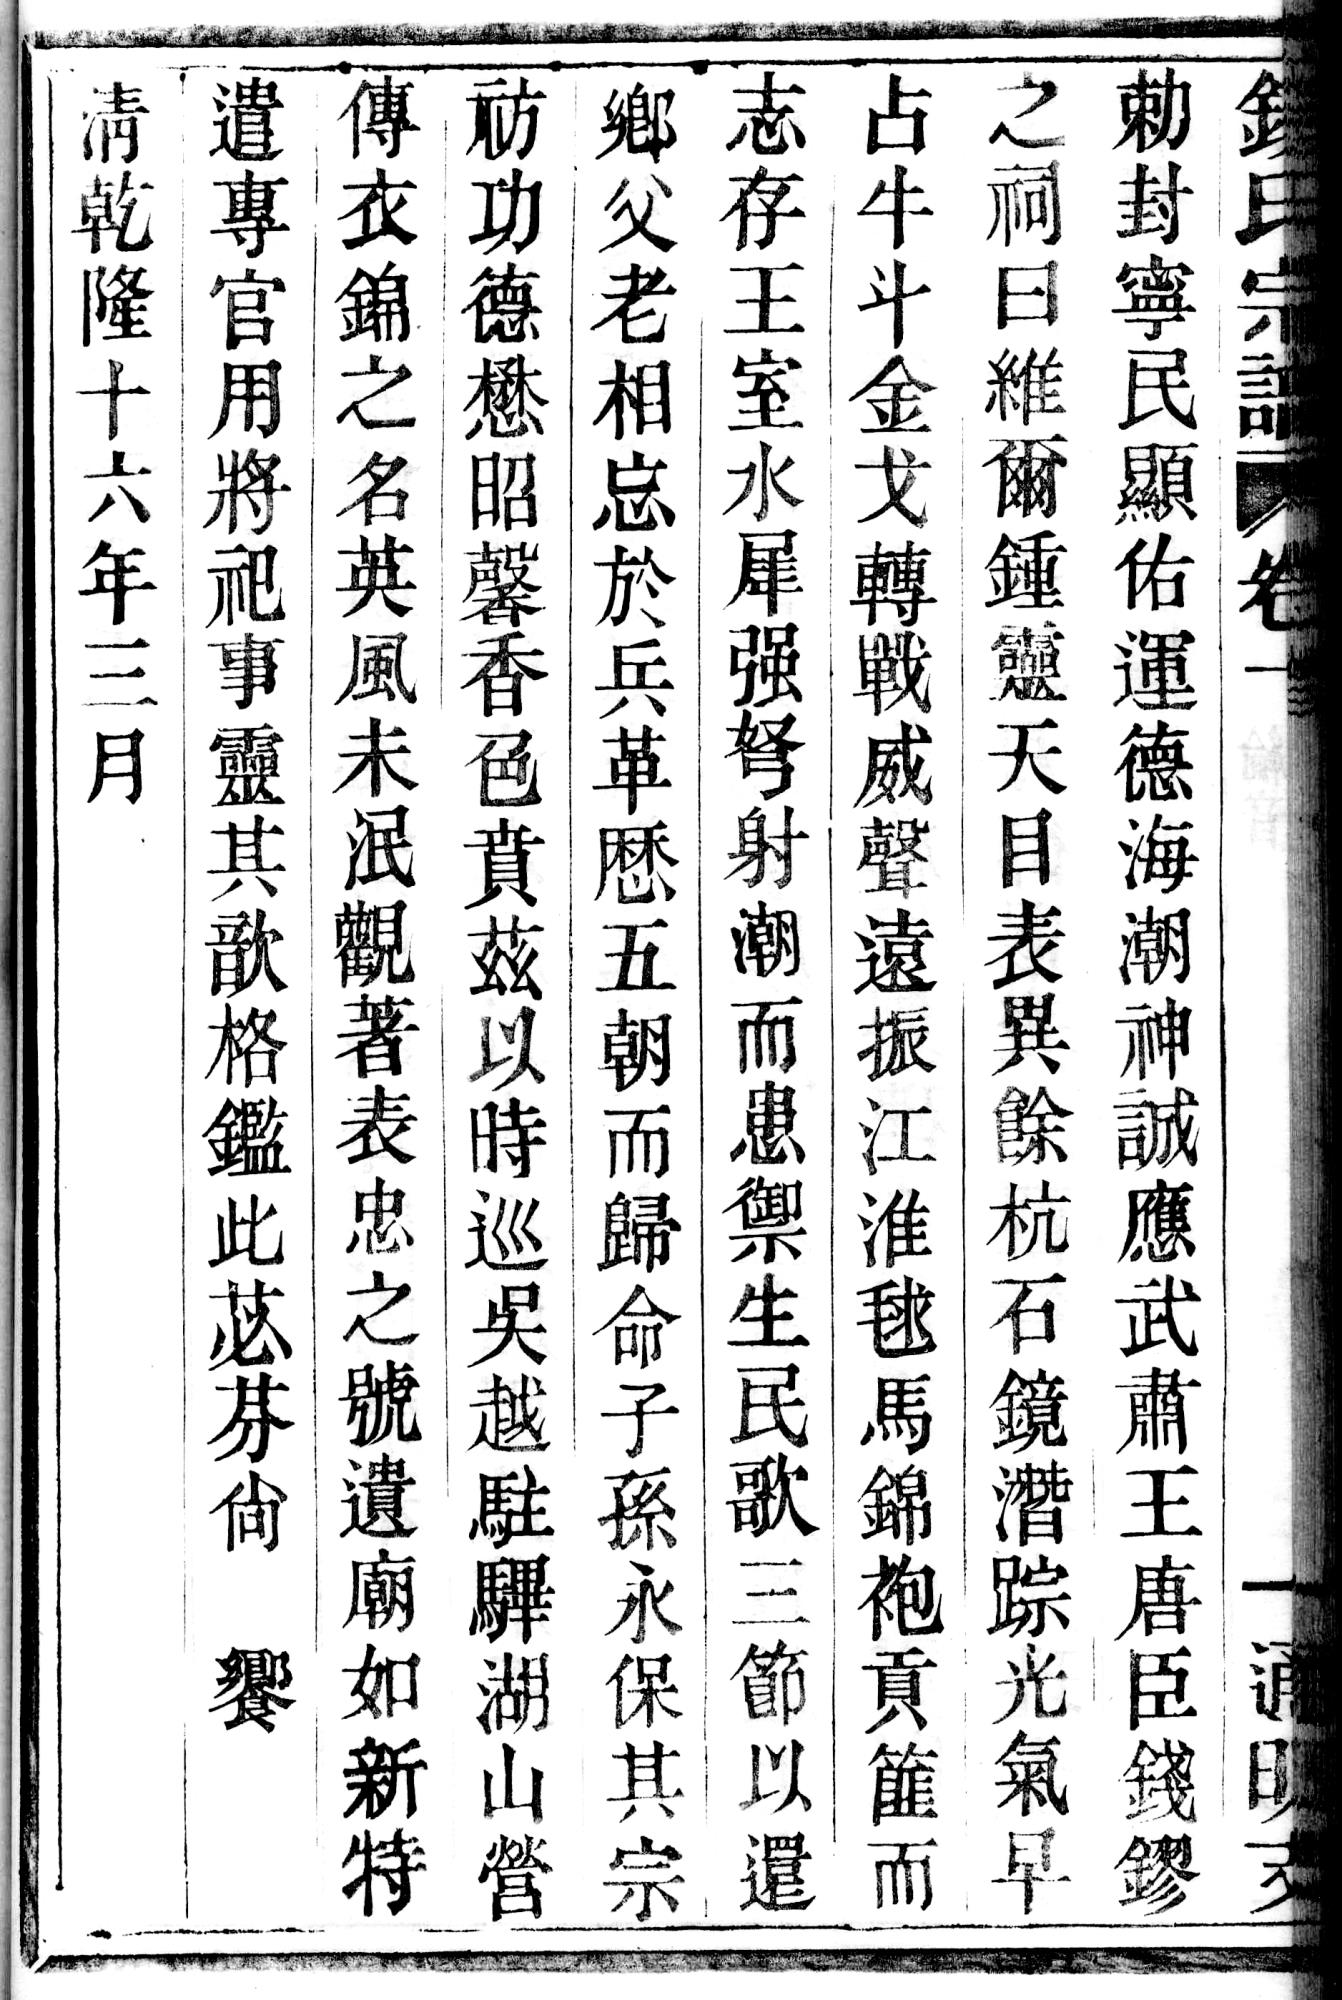 錢氏宗譜 卷一 一 通
勅封寧民顯佑運德海潮神誠應武肅王唐臣錢鏐
之祠曰維爾鍾靈天目表異餘杭石鏡潛踪光氣早
占牛斗金戈轉戰威聲遠振江淮毬馬錦袍貢篚而
志存王室水犀强弩射潮而患禦生民歌三節以還
鄉父老相忘於兵革歷五朝而歸命子孫永保其宗
祊功德懋昭馨香色賁茲以時巡吳越駐驆湖山營
傳衣錦之名英風未泯觀著表忠之號遺廟如新特
遣專官用將祀事靈其歆格鑑此苾芬尙 饗
淸乾隆十六年三月